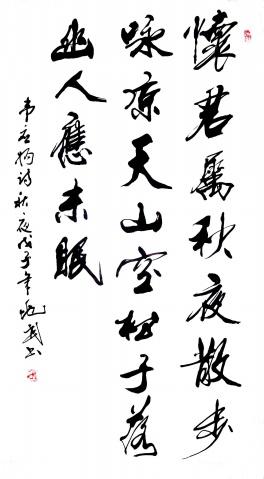 懷君屬秋夜散步
咏凉天山空松子落
幽人應未眠
韦应物诗秋夜戊子年书